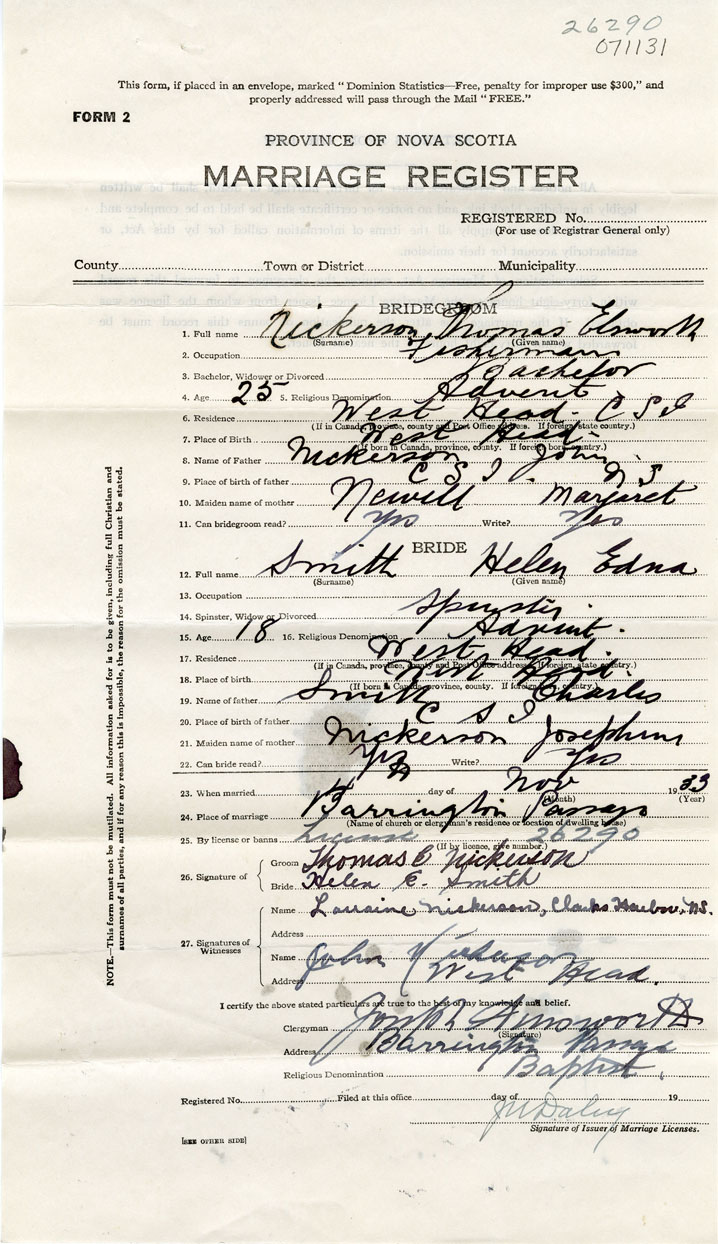 26290
071131
This form, if placed in an envelope, marked "Dominion Statistics—Free, penalty for improper use $300," and
properly addressed will pass through the Mail "FREE."
FORM 2
PROVINCE OF NOVA SCOTIA
MARRIAGE REGISTER
REGISTERED No.
(For use of Registrar General only)
County Town or District Municipality
BRIDEGROOM
1. Full name Nickerson, Thomas Elsworth
(Surname) (Given name)
2. Occupation Fisherman
3. Bachelor, Widower or Divorced Bachelor
4. Age 25 5. Religious Denomination Advent
6. Residence West Head. C S I
(If in Canada, province, county and Post Office address. If foreign, state country.)
7. Place of Birth West Head.
(If born in Canada, province, county. If foreign born, country.)
8. Name of Father Nickerson John
9. Place of birth of father C S I. N S
10. Maiden name of mother Newell Margaret
11. Can bridegroom read? Yes Write? Yes
BRIDE
12. Full name Smith Helen Edna
(Surname) (Given name)
13. Occupation
14. Spinster, Widow or Divorced Spinster.
15. Age 18 16. Religious Denomination Advent.
17. Residence West Head.
(If in Canada, province, county and Post Office address. If foreign, state country.)
18. Place of birth West Head.
(If born in Canada, province, county. If foreign born, country.)
19. Name of father Smith Charles
20. Place of birth of father C S I
21. Maiden name of mother Nickerson Josephine
22. Can bride read? Yes Write? Yes
23. When married day of Nov 1933
(Month) (Year)
24. Place of marriage Barrington Passage
(Name of church or clergyman's residence or location of dwelling house)
25. By license or banns License 26290
(If by licence, give number.)
26. Signature of Groom Thomas E Nickerson
Bride Helen E. Smith
27. Signatures of Witnesses
Name Lorraine Nickerson, Clarks Harbor, N.S.
Address
Name John Nickerson
Address West Head.
I certify the above stated particulars are true to the best of my knowledge and belief.
Clergyman Joseph Ainsworth
(Signature)
Address Barrington Passage
Religious Denomination Baptist.
Registered No. Filed at this office day of 19
Signature of Issuer of Marriage Licenses.
[SEE OTHER SIDE]
NOTE.—This form must not be mutilated. All information asked for is to be given, including full Christian and
surnames of all parties, and if for any reason this is impossible, the reason for the omission must be stated.